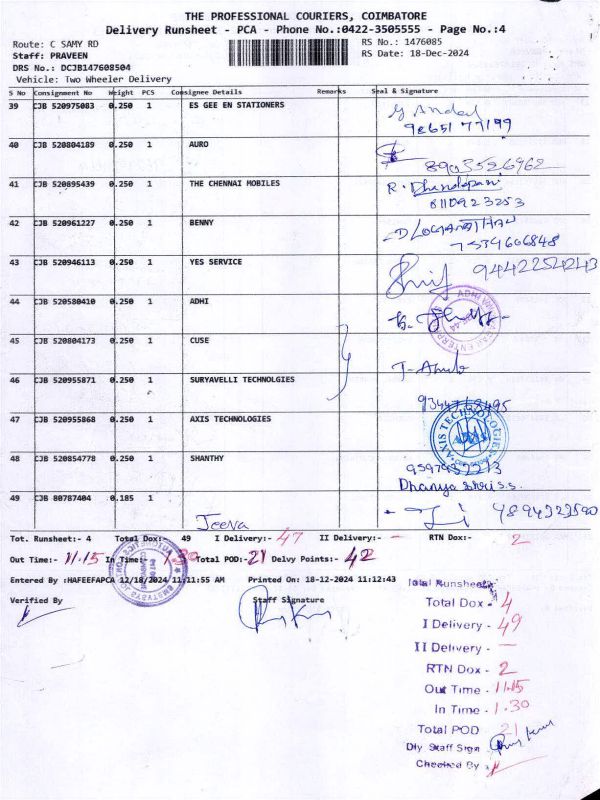 THE PROFESSIONAL COURIERS, COIMBATORE
Delivery Runsheet - PCA - Phone No.:0422-3505555 - Page No.:4
Route: C SAMY RD RS No.: 1476085
Staff: PRAVEEN RS Date: 18-Dec-2024
DRS No.: DCJB147608504
Vehicle: Two Wheeler Delivery
S No Consignment No Weight PCS Consignee Details Remarks Seal & Signature
39 CJB 520975083 0.250 1 ES GEE EN STATIONERS
98651 77199
40 CJB 520804189 0.250 1 AURO
8903526962
41 CJB 520895439 0.250 1 THE CHENNAI MOBILES R. Dhandapani
8110923253
42 CJB 520961227 0.250 1 BENNY D LOGANATHAN
7539606848
43 CJB 520946113 0.250 1 YES SERVICE
44 CJB 520580410 0.250 1 ADHI
45 CJB 520804173 0.250 1 CUSE
46 CJB 520955871 0.250 1 SURYAVELLI TECHNOLGIES
9344768495
47 CJB 520955868 0.250 1 AXIS TECHNOLOGIES AXIS TECHNOLOGIES
48 CJB 520854778 0.250 1 SHANTHY
Dhanya
49 CJB 80787404 0.185 1
Jeeva
Tot. Runsheet:- 4 Total Dox:- 49 I Delivery:- 47 II Delivery:- - RTN Dox:- 2
Out Time:- 11.15 In Time:- 1.30 Total POD:- 21 Delvy Points:- 42
Entered By :HAFEEFAPCA 12/18/2024 11:11:55 AM Printed On: 18-12-2024 11:12:43
Verified By Staff Signature
Total Runsheet
Total Dox - 4
I Delivery - 49
II Delivery - —
RTN Dox - 2
Out Time - 11.15
In Time - 1.30
Total POD 21
Dly Staff Sign
Checked By